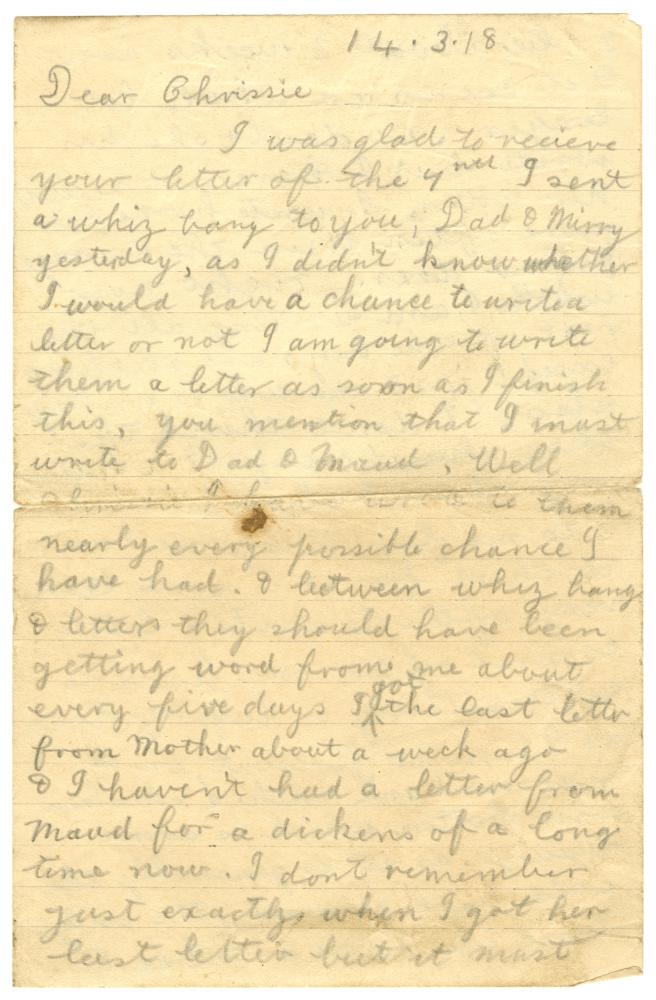 14.3.18
Dear Chrissie
I was glad to recieve
your letter of the 4nd I sent
a whiz bang to you, Dad & Mirry
yesterday, as I didn't know whether
I would have a chance to write a
letter or not I am going to write
them a letter as soon as I finish
this, you mention that I must
write to Dad & Maud. Well
Chrissie I have wrote to them
nearly every possible chance I
have had. & between whiz bang
& letters they should have been
getting word from me about
every five days I got the last letter
from Mother about a week ago
& I haven't had a letter from
Maud for a dickens of a long
time now. I don't remember
just exactly when I got her
last letter but it must